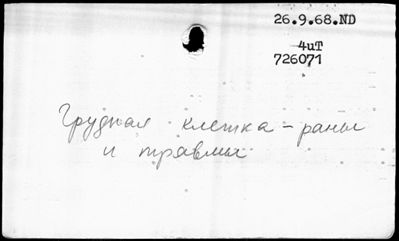 26.9.68.ND
4uT
726071
Грудная клетка - раны
и травмы